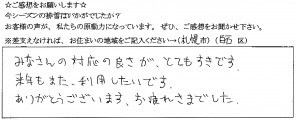 ☆ご感想をお願いします☆
今シーズンの排雪はいかがでしたか？
お客様の声が、私たちの原動力になっています。ぜひ、ご感想をお聞かせ下さい。
※差支えなければ、お住まいの地域をご記入ください→(札幌市)(白石区)
みなさんの対応の良さが、とてもすきです。
来年もまた、利用したいです。
ありがとうございます、お疲れさまでした。